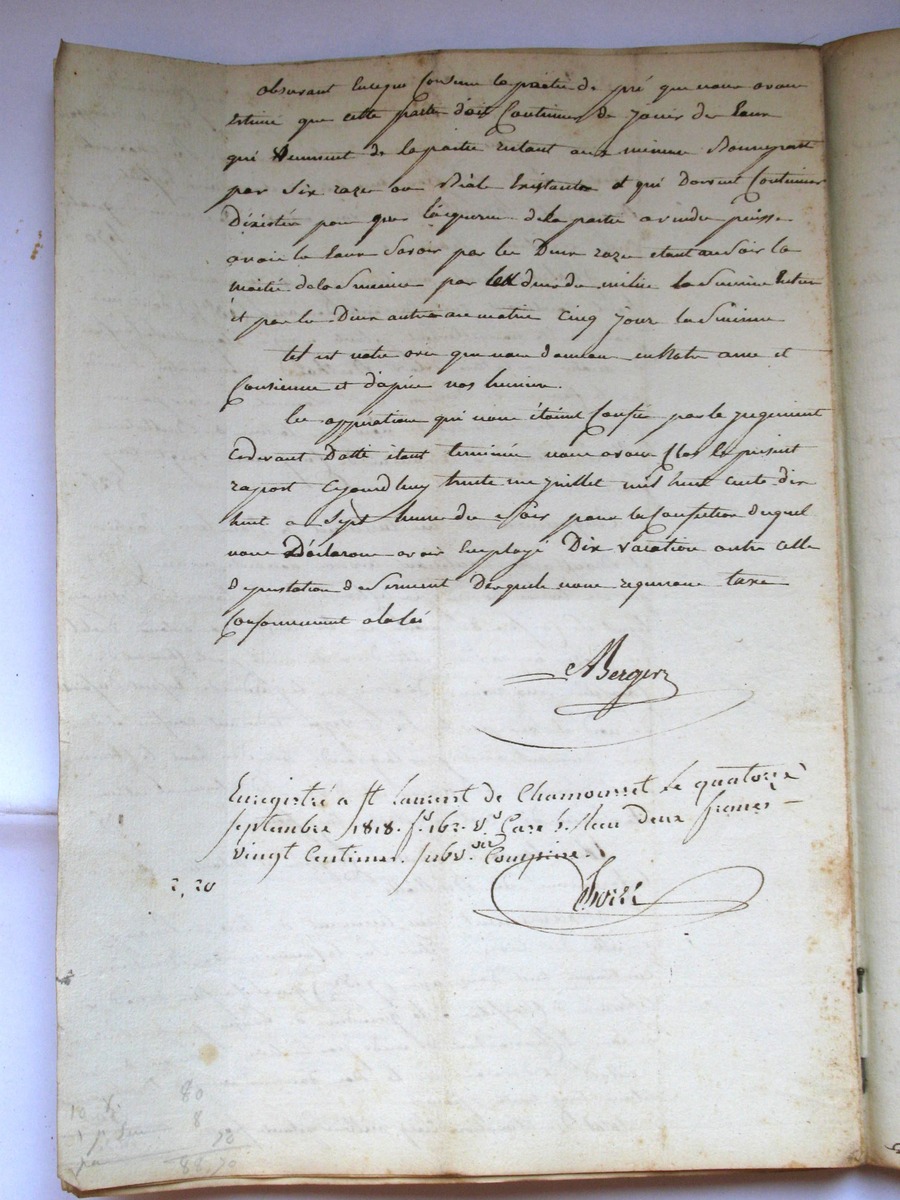 observant lui que Concerne la partie de pré que nous avons
Estimé que cette partie doit Continuer de jouir des Eaux
qui viennent de la partie restant aux mineurs Bonnepart
par Six raze ou Béale Existantes et qui doivent Continuer
D'éxister pour que l'acquereur de la partie a vendre puisse
avoir la Eaux Savoir par les Deux raze etant au Soir la
moitié de la Semaine par les deux du milieu la Semaine Entiere
et par les Deux autres au matin Cinq jour la Semaine
tel est notre avis que nous donnons en Notre ame et
Consience et d'après nos lumiere.
les oppération qui nous étoient Confié par le jugement
Cydevant Datté étant terminée nous avons Clos le présent
raport Cejourd'huy trente un juillet mil huit cents dix
huit a Sept heures du Soir pour la Confection duquel
nous Déclarons avoir Employé Dix vacation outre celle
de prestation de Serment Desquels nous requerons taxe
Conformement a la loi
Bergery
Enregistré a St Laurent de Chamousset le quatorze
Septembre 1818. fo. 162. Vo. Case 5. Reçu deux francs
vingt Centimes. Subv.on Comprise.
2,20
80
8
88